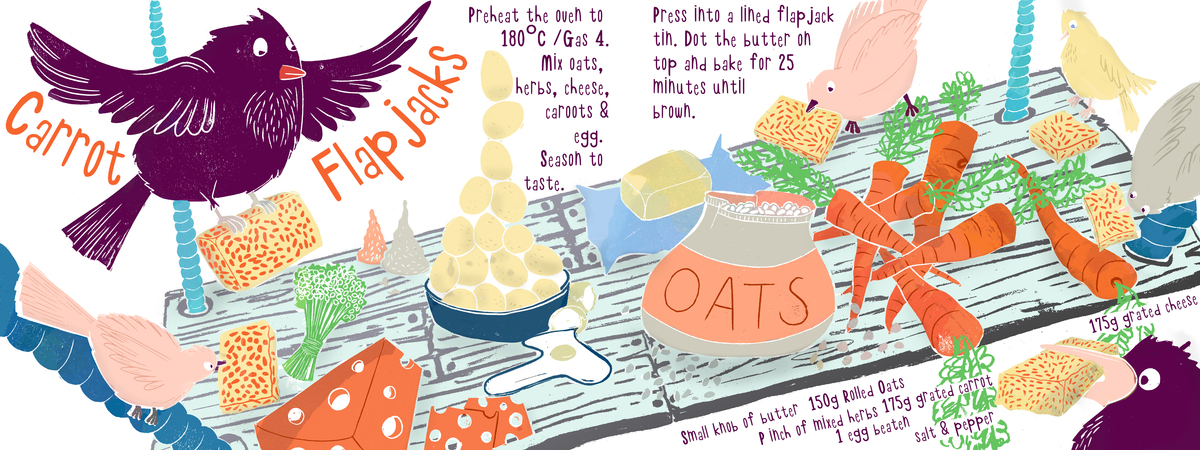 Carrot
Flapjacks
Preheat the oven to
180°C /Gas 4.
Mix oats,
herbs, cheese,
caroots &
egg.
Season to
taste.
Press into a lined flapjack
tin. Dot the butter on
top and bake for 25
minutes until
brown.
OATS
175g grated cheese
Small knob of butter 150g Rolled Oats
Pinch of mixed herbs 175g grated carrot
1 egg beaten salt & pepper